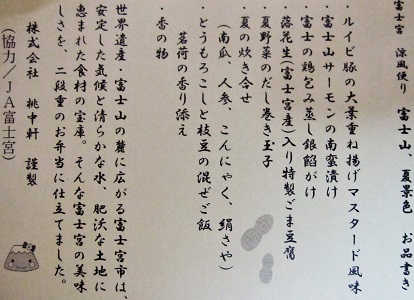 富士宮 涼風便り 富士山、夏景色 お品書き
・ルイビ豚の大葉重ね揚げマスタード風味
・富士山サーモンの南蛮漬け
・富士の鶏包み蒸し銀餡がけ
落花生(富士宮産)入り特製ごま豆腐
・夏野菜のだし巻き玉子
・夏の炊き合せ
(南瓜、人参、こんにゃく、絹さや)
・とうもろこしと枝豆の混ぜご飯
茗荷の香り添え
・香の物
世界遺産、富士山の麓に広がる富士宮市は、
安定した気候と清らかな水、肥沃な土地に
恵まれた食材の宝庫。そんな富士宮の美味
しさを、二段重のお弁当に仕立てました。
株式会社 桃中軒 謹製
(協力/JA富士宮)